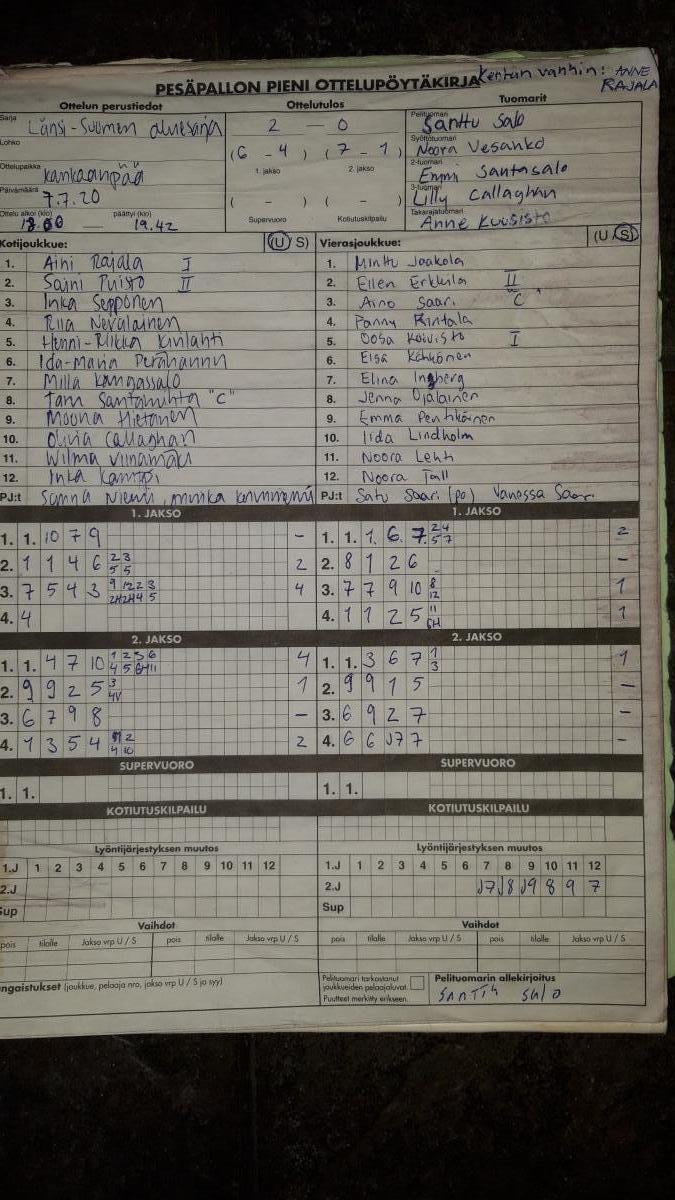 PESÄPALLON PIENI OTTELUPÖYTÄKIRJA
Kentän vanhin: ANNE RAJALA
Ottelun perustiedot
Ottelutulos
Tuomarit
Sarja
Länsi-Suomen aluesarja
Lohko
Ottelupaikka
Kankaanpää
Päivämäärä
7.7.20
Ottelu alkoi (klo)
päättyi (klo)
19.42
2 - 0
(6 - 4) (7 - 1)
1. jakso
2. jakso
( - ) ( - )
Supervuoro
Kotiutuskilpailu
Pelituomari
Santtu Salo
Syöttötuomari
Noora Vesanko
2-tuomari
Emmi Santasalo
3-tuomari
Lilly Callaghan
Takarajatuomari
Anne Kuusisto
Kotijoukkue: (U S)
1. Aini Rajala I
2. Saini Puisto II
3. Inka Sepponen
4. Riia Nevalainen
5. Henni-Riikka Kinlahti
6. Ida-Maria Perähannu
7. Milla Kangassalo
8. Tam Santahuhta "C"
9. Moona Hietanen
10. Olivia Callaghan
11. Wilma Viinamäki
12. Inka Kamppi
PJ:t Sanna Niemi,
Vierasjoukkue: (U S)
1. Minttu Jaakola
2. Ellen Erkkilä II
3. Aino Saari "C"
4. Fanny Rintala
5. Oosa Koivisto I
6. Eisa Kähkönen
7. Elina Ingberg
8. Jenna Ojalainen
9. Emma Penttikäinen
10. Iida Lindholm
11. Noora Lehti
12. Noora Tall
PJ:t Satu Saari (po) Vanessa Saari
1. JAKSO
1. 1. 10 7 9 -
2. 1 1 4 6 2 3 5 5 2
3. 7 5 4 3 4
4. 4
1. JAKSO
1. 1. 1. 6. 7. 24 57 2
2. 8 1 2 6 -
3. 7 7 9 10 8 12 1
4. 1 1 2 5 11 1
2. JAKSO
1. 1. 4 7 10 4
2. 9 9 2 5 3 4V 1
3. 6 7 9 8 -
4. 1 3 5 4 2
2. JAKSO
1. 1. 3 6 7 1 3 1
2. 9 9 1 5 -
3. 6 9 2 7 -
4. 6 6 J7 7 -
SUPERVUORO
1. 1.
SUPERVUORO
1. 1.
KOTIUTUSKILPAILU
KOTIUTUSKILPAILU
Lyöntijärjestyksen muutos
1.J 1 2 3 4 5 6 7 8 9 10 11 12
2.J
Sup
Lyöntijärjestyksen muutos
1.J 1 2 3 4 5 6 7 8 9 10 11 12
2.J J7 J8 J9 8 9 7
Sup
Vaihdot
pois tilalle Jakso vrp U / S pois tilalle Jakso vrp U / S
Vaihdot
pois tilalle Jakso vrp U / S pois tilalle Jakso vrp U / S
ngaistukset (joukkue, pelaaja nro, jakso vrp U / S ja syy)
Pelituomari tarkastanut
joukkueiden pelaajaluvat.
Puutteet merkitty erikseen.
Pelituomarin allekirjoitus
Santtu Salo